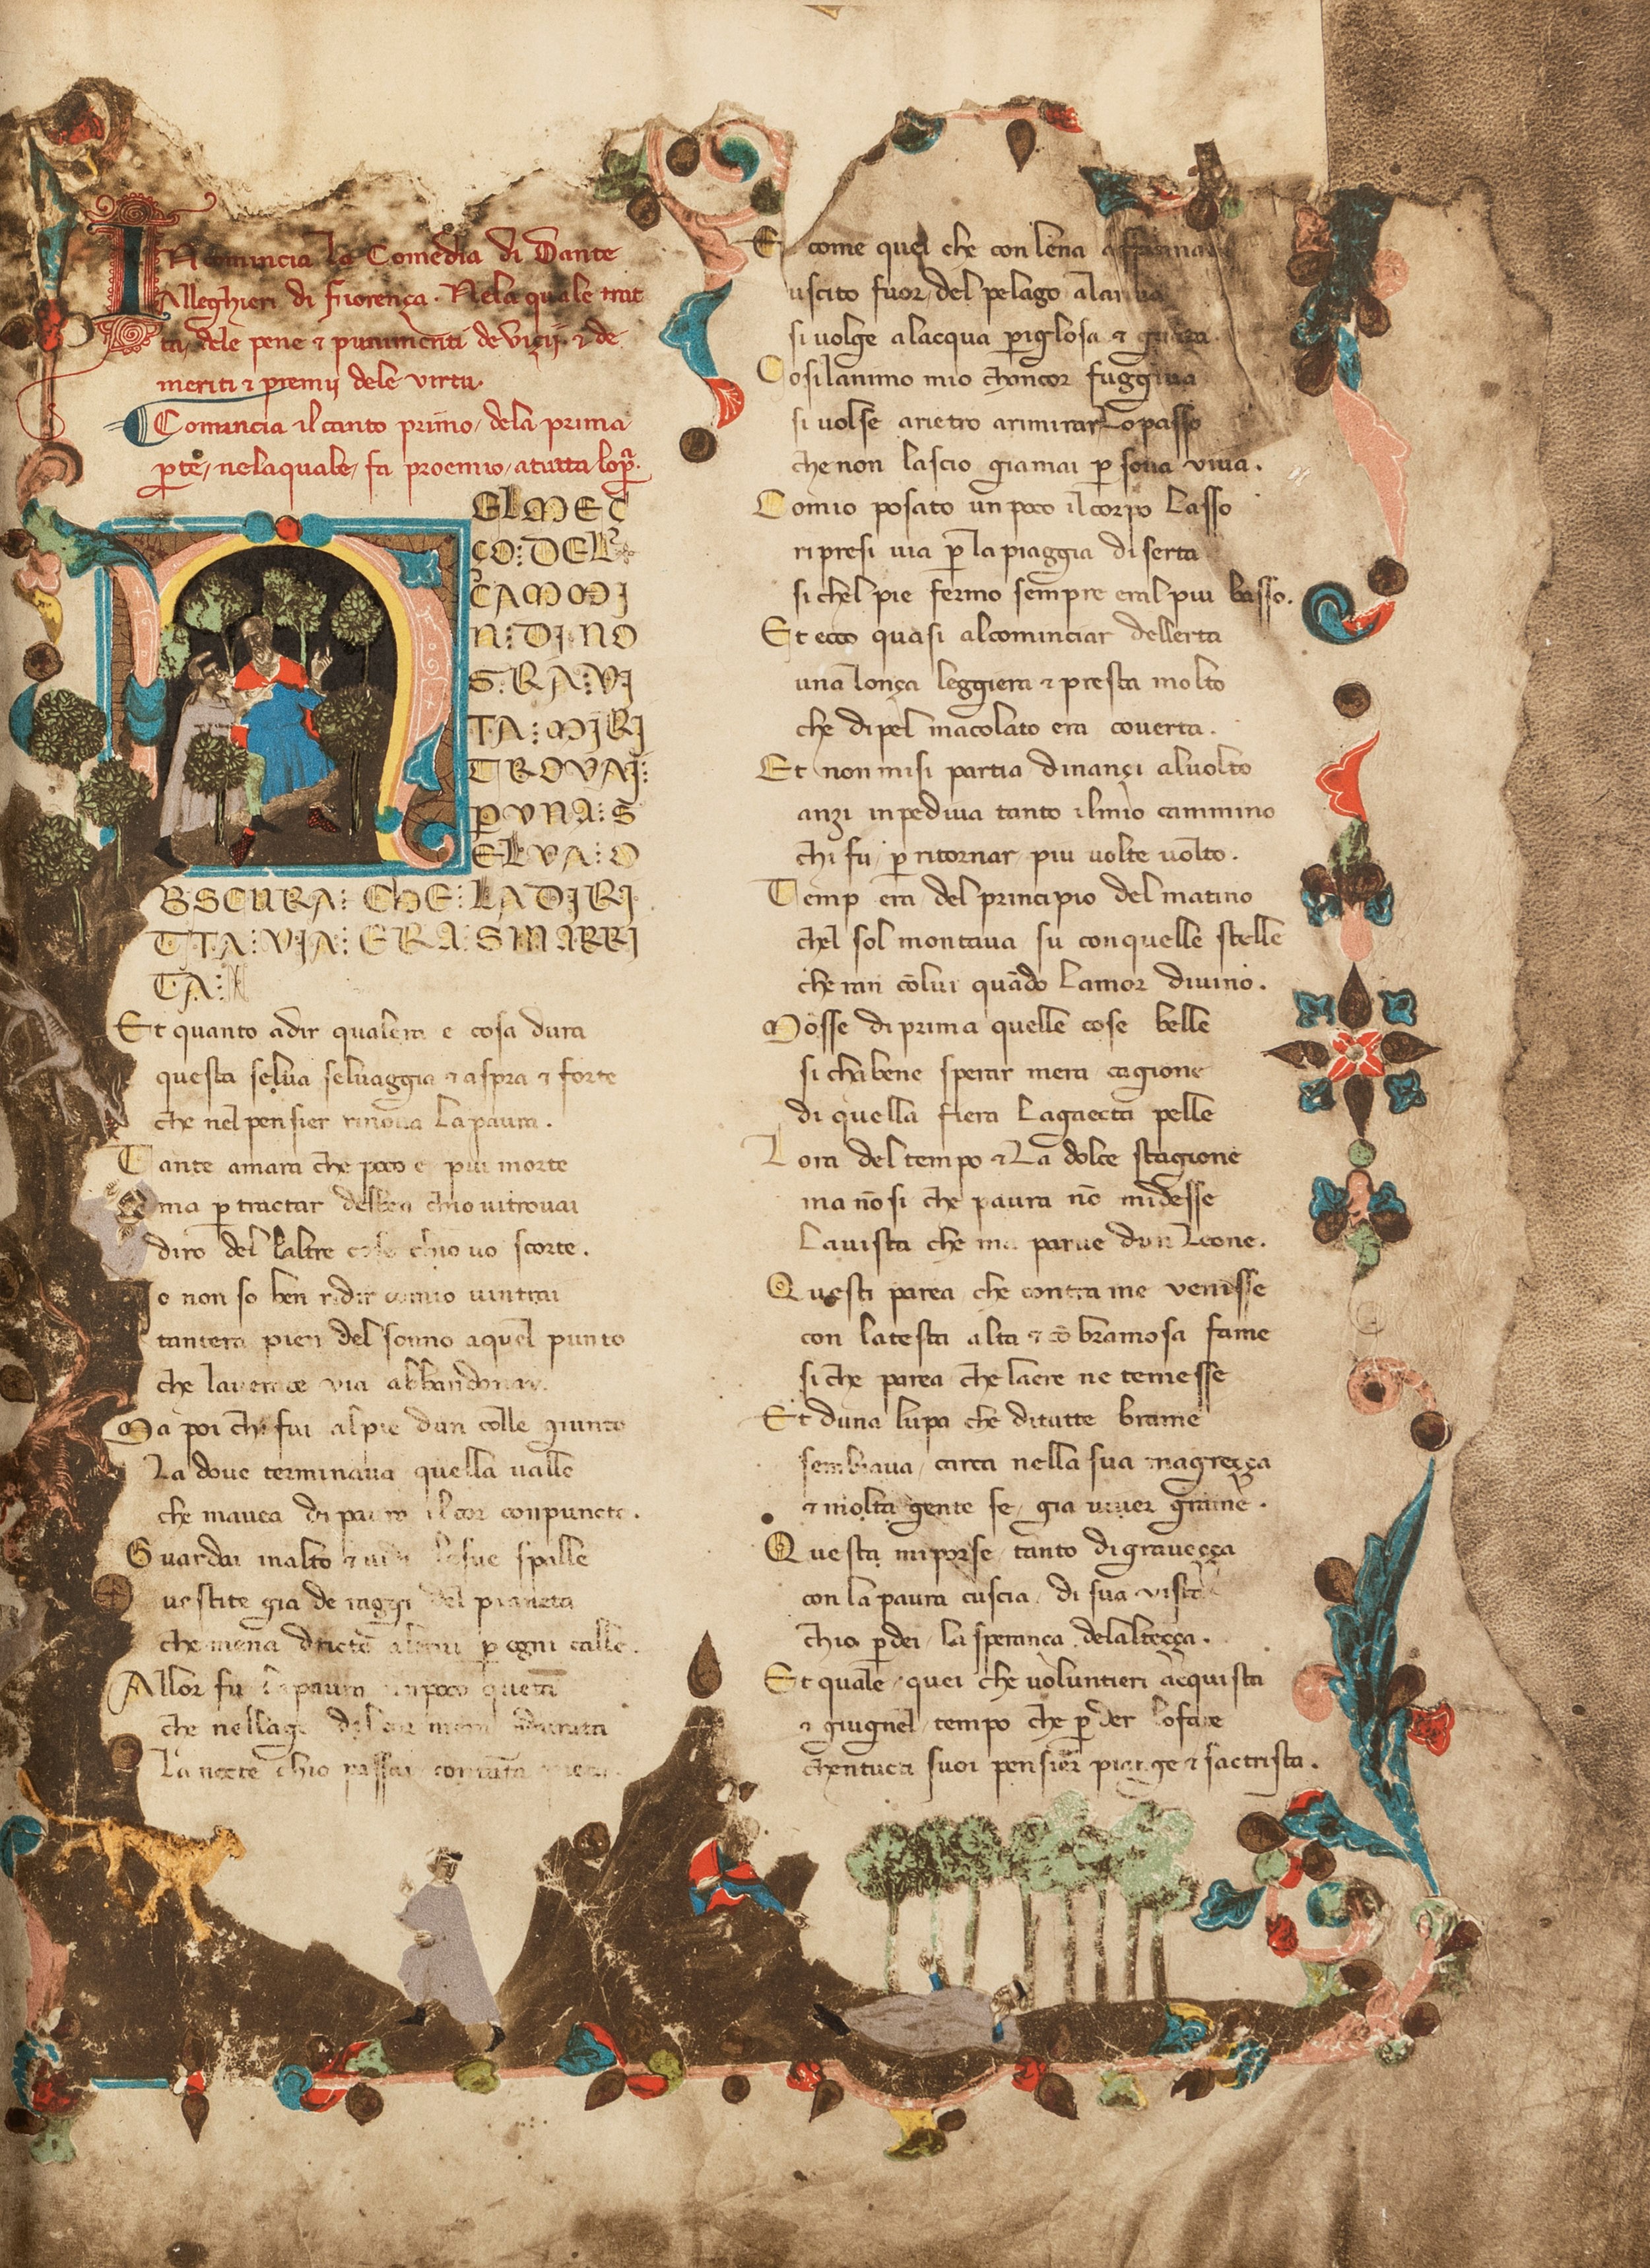 INcomincia la Comedia di Dante
Alleghieri di fiorença. Nela quale trat
ta dele pene ⁊ punimenti de viçij. ⁊ de
meriti ⁊ premij dele virtu.
Comincia il canto primo, dela prima
ꝑte, nelaquale, fa proemio, atutta, lopͣ.
NELMEÇ
ÇO: DEL
CAMMI
N: DI: NO
STRA: VI
TA: MIRI
TROVAI:
ꝑ VNA: S
ELVA: O
BSCURA: CHE: LA DIRI
TTA: VIA: ERA: SMARRI
TA:
Et quanto adir qualera e cosa dura
questa selua seluaggia ⁊ aspra ⁊ forte
che nel pensier rinoua la paura.
Tante amara che poco e piu morte
ma ꝑ tractar delben chio uitrouai
diro del laltre cose chio uo scorte.
Io non so ben ridir comio uintrai
tantera pien del sonno aquel punto
che lauerace via abbandonai.
Ma poi chi fui alpie dun colle giunto
La doue terminaua quella ualle
che mauea di paura il cor conpuncto.
Guardai inalto ⁊ uidi lesue spalle
uestite gia de raggi del pianeta
che mena dricto altrui ꝑ ogni calle.
Allor fu la paura unpoco queta
che nellago del cor mera durata
La nocte chio passai contāta pieta.
Et come quei che con lena affannata
uscito fuor, del pelago alariua
si uolge alacqua ꝑiglosa ⁊ guata.
Cosi lanimo mio chancor fuggiua
si uolse arietro arimirar lo passo
che non lascio giamai ꝑsona viua.
Comio posato un poco il corpo lasso
ripresi uia ꝑ la piaggia diserta
si chel pie fermo sempre eralpiu basso.
Et ecco quasi alcominciar dellerta
una lonça leggiera ⁊ presta molto
che dipel macolato era couerta.
Et non misi partia dinançi aluolto
anzi inpediua tanto ilmio cammino
chi fu, ꝑ ritornar, piu uolte uolto.
Temp era del principio del matino
chel sol montaua su conquelle stelle
cheran cō lui quādo lamor diuino.
Mosse di prima quelle cose belle
si cha bene sperar mera cagione
di quella fiera lagaecta pelle
Lora del tempo ⁊ La dolce stagione
ma nō si che paura nō midesse
Lauista che mi parue dun Leone.
Questi parea che contra me venisse
con latesta alta ⁊ cō bramosa fame
si che parea che laere ne temesse
Et duna lupa che ditutte brame
sembiaua, carca nella sua magreçça
⁊ molta gente fe, gia uiuer grame.
Questa miporse tanto di graueçça
con la paura cuscia, di sua vista
chio ꝑdei, la sperança, delalteçça.
Et quale, quei che uoluntieri acquista
⁊ giugnel, tempo che ꝑder lo face
chentucti suoi pensier piange ⁊ sactrista.